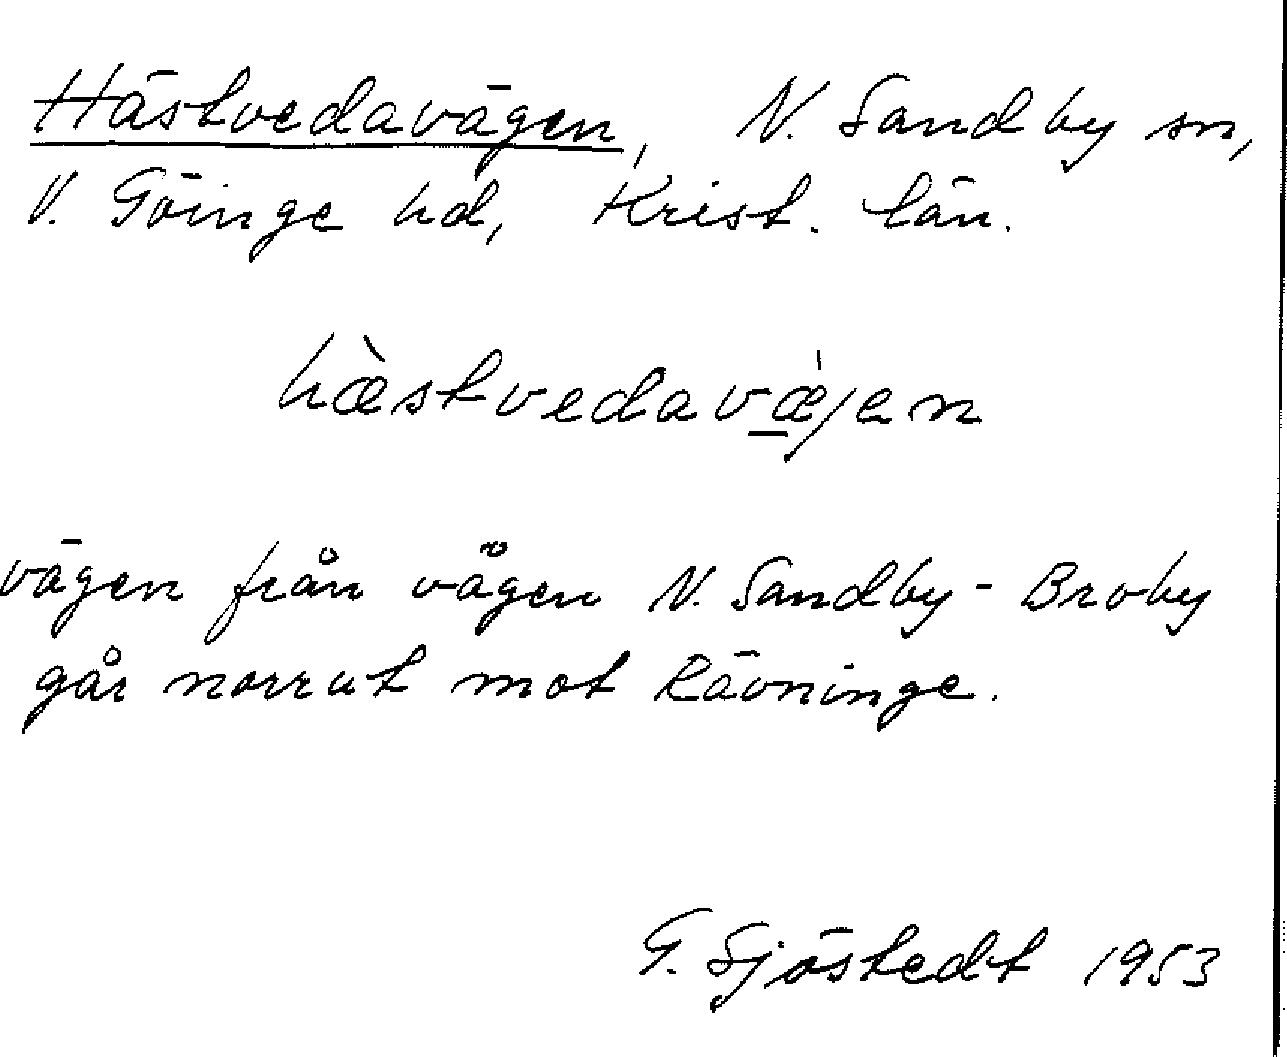 Hästvedavägen, N. Sandby sn,
V. Göinge hd, Krist. län.
hæ̀stvedavæ̀jen
vägen från vägen N. Sandby - Broby
går norrut mot Rävninge.
G. Sjöstedt 1953